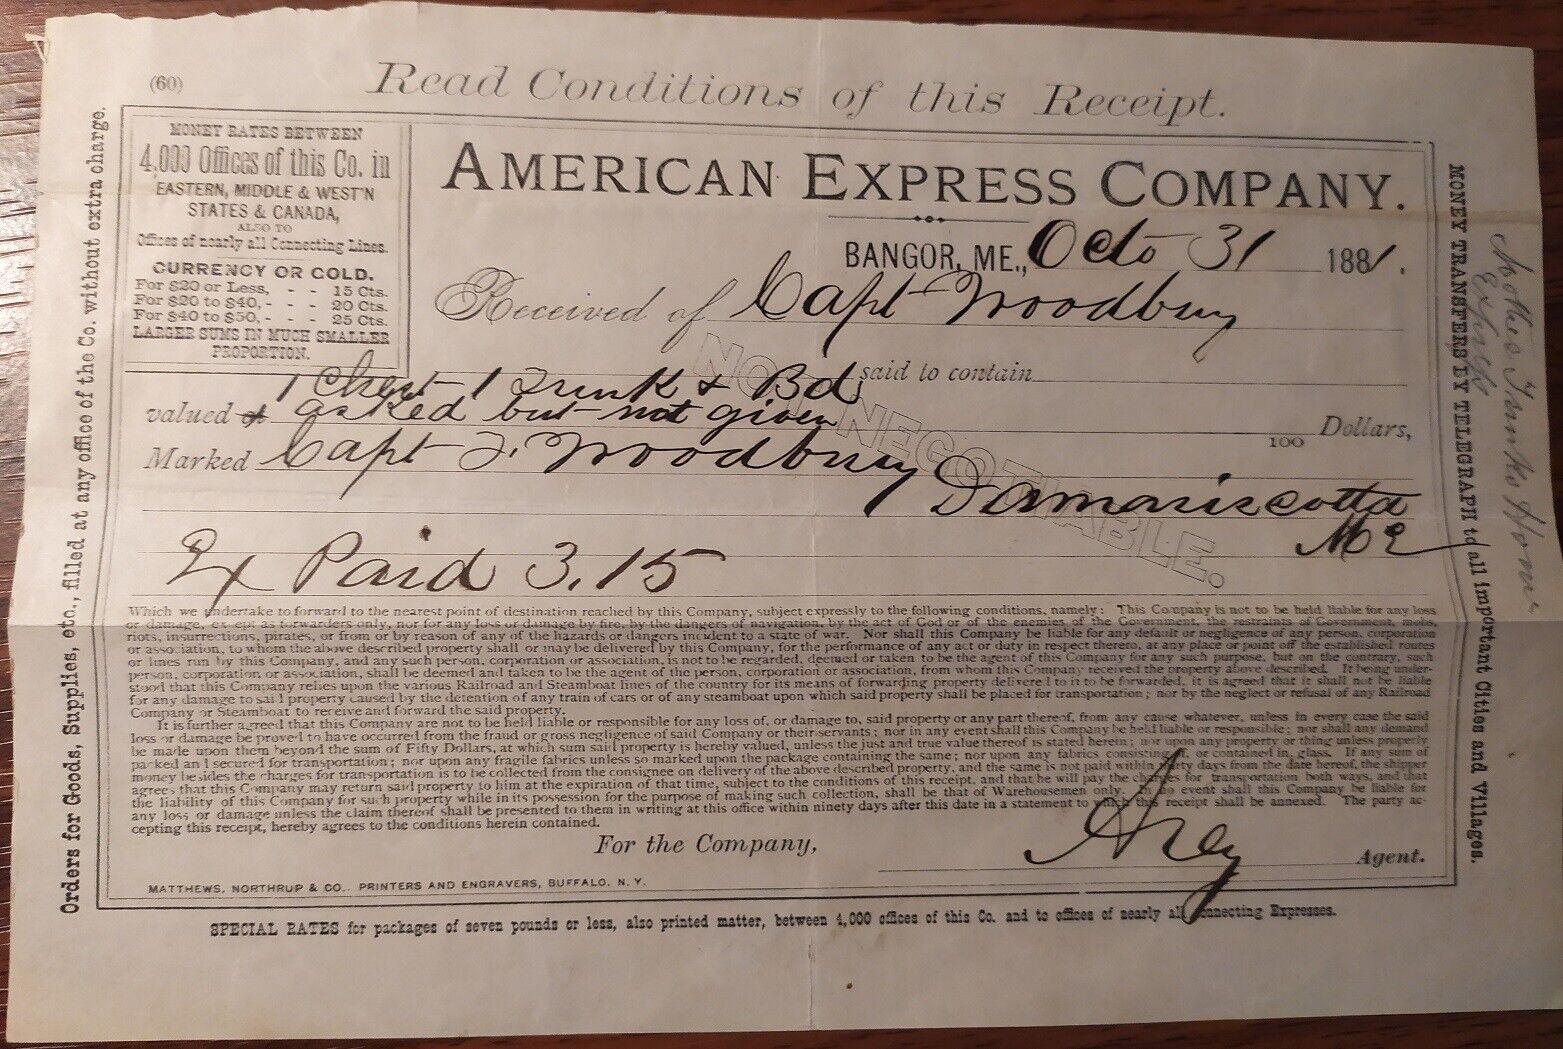 (60)
Read Conditions of this Receipt.
MONEY RATES BETWEEN
4,000 Offices of this Co. in
EASTERN, MIDDLE & WEST'N
STATES & CANADA,
ALSO TO
Offices of nearly all Connecting Lines.
CURRENCY OR GOLD.
For $20 or Less, - - 15 Cts.
For $20 to $40, - - - 20 Cts.
For $40 to $50, - - - 25 Cts.
LARGER SUMS IN MUCH SMALLER
PROPORTION.
AMERICAN EXPRESS COMPANY.
BANGOR, ME., Octo 31 1881.
Received of Capt Woodbury
1 Chest 1 Trunk & Bd said to contain
valued at asked but not given 100 Dollars,
Marked Capt J. Woodbury
Damariscotta
Me
Ex Paid 3.15
NOT NEGOTIABLE.
Which we undertake to forward to the nearest point of destination reached by this Company, subject expressly to the following conditions, namely: This Company is not to be held liable for any loss
or damage, except as forwarders only, nor for any loss or damage by fire, by the dangers of navigation, by the act of God or of the enemies of the Government, the restraints of Government, mobs,
riots, insurrections, pirates, or from or by reason of any of the hazards or dangers incident to a state of war. Nor shall this Company be liable for any default or negligence of any person, corporation
or association, to whom the above described property shall or may be delivered by this Company, for the performance of any act or duty in respect thereto, at any place or point off the established routes
or lines run by this Company, and any such person, corporation or association, is not to be regarded, deemed or taken to be the agent of this Company for any such purpose, but on the contrary, such
person, corporation or association, shall be deemed and taken to be the agent of the person, corporation or association, from whom this Company received the property above described. It being under-
stood that this Company relies upon the various Railroad and Steamboat lines of the country for its means of forwarding property delivered to it to be forwarded, it is agreed that it shall not be liable
for any damage to said property caused by the detention of any train of cars or of any steamboat upon which said property shall be placed for transportation; nor by the neglect or refusal of any Railroad
Company or Steamboat to receive and forward the said property.
It is further agreed that this Company are not to be held liable or responsible for any loss of, or damage to, said property or any part thereof, from any cause whatever, unless in every case the said
loss or damage be proved to have occurred from the fraud or gross negligence of said Company or their servants; nor in any event shall this Company be held liable or responsible; nor shall any demand
be made upon them beyond the sum of Fifty Dollars, at which sum said property is hereby valued, unless the just and true value thereof is stated herein; nor upon any property or thing unless properly
packed and secured for transportation; nor upon any fragile fabrics unless so marked upon the package containing the same; nor upon any fabrics consisting of, or contained in, glass. If any sum of
money besides the charges for transportation is to be collected from the consignee on delivery of the above described property, and the same is not paid within thirty days from the date hereof, the shipper
agrees that this Company may return said property to him at the expiration of that time, subject to the conditions of this receipt, and that he will pay the charges for transportation both ways, and that
the liability of this Company for such property while in its possession for the purpose of making such collection, shall be that of Warehousemen only. In no event shall this Company be liable for
any loss or damage unless the claim thereof shall be presented to them in writing at this office within ninety days after this date in a statement to which this receipt shall be annexed. The party ac-
cepting this receipt, hereby agrees to the conditions herein contained.
For the Company,
Agent.
MATTHEWS, NORTHRUP & CO., PRINTERS AND ENGRAVERS, BUFFALO, N. Y.
SPECIAL RATES for packages of seven pounds or less, also printed matter, between 4,000 offices of this Co. and to offices of nearly all Connecting Expresses.
Orders for Goods, Supplies, etc., filled at any office of the Co. without extra charge.
MONEY TRANSFERS BY TELEGRAPH to all important Cities and Villages.
Trunks Home
Express